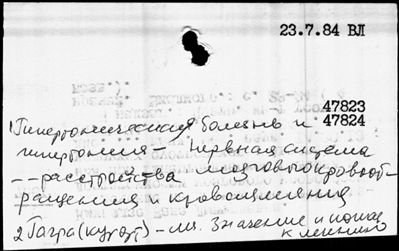 23.7.84 ВЛ
47823
47824
1 Гипертоническая болезнь и
гипертония - Нервная система
-- расстройства мозгового кровооб-
ращения и кровоизлияния
2 Гагра (курорт) - ил. Значение и показ
к лечению